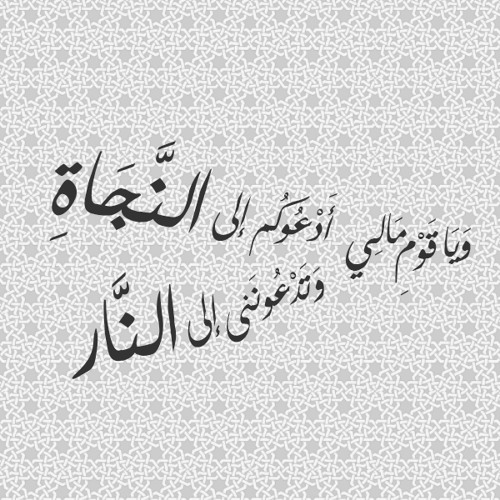 وَيَا قَوْمِ مَالِي أَدْعُوكُم إلى النَّجَاةِ
وَتَدْعُونَنى إلى النَّار